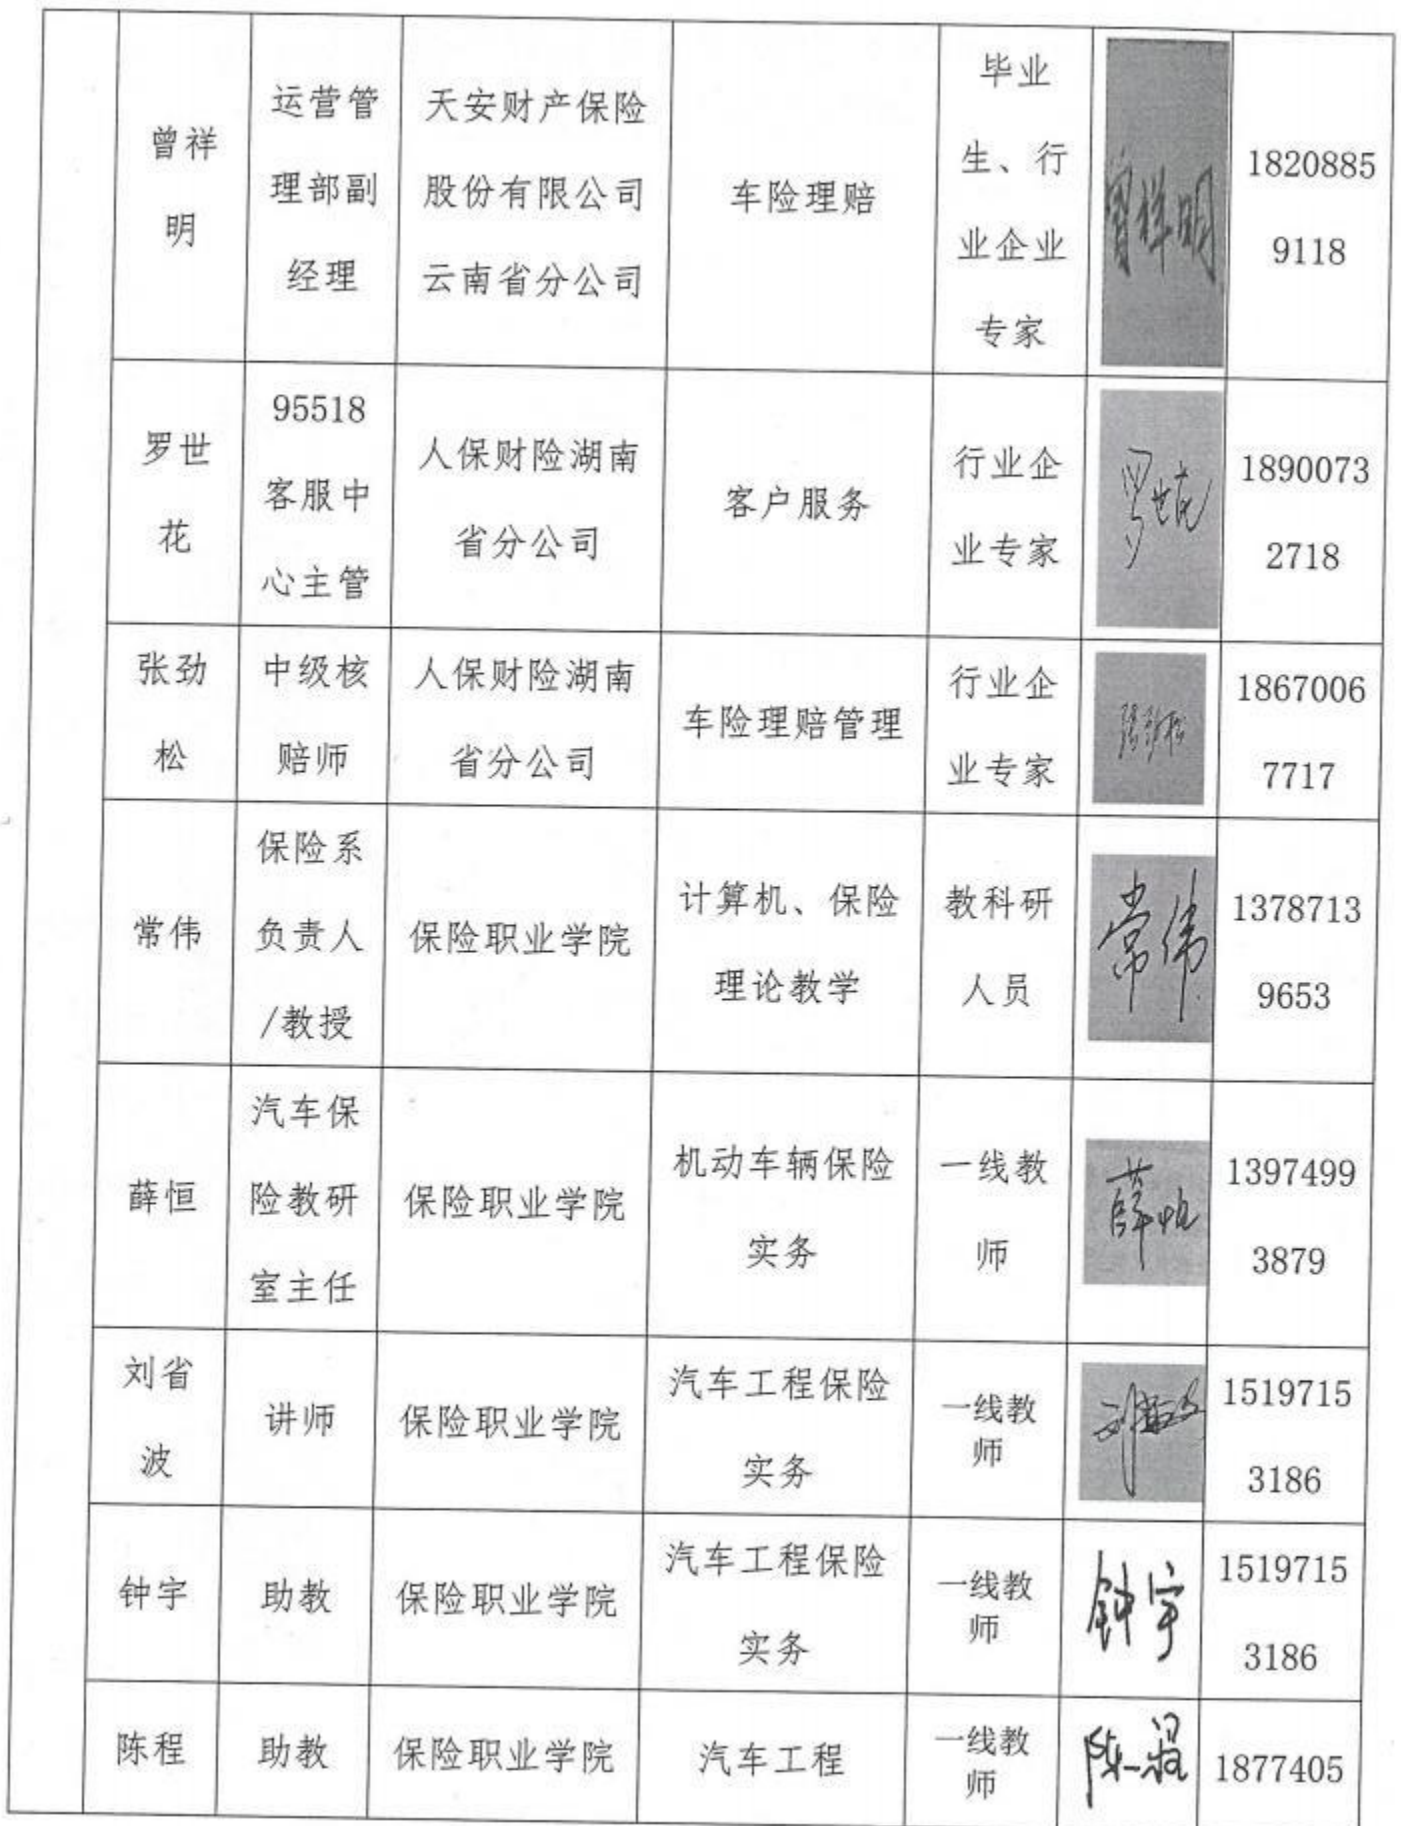 曾祥
明
运营管
理部副
经理
天安财产保险
股份有限公司
云南省分公司
车险理赔
毕业
生、行
业企业
专家
曾祥明
1820885
9118
罗世
花
95518
客服中
心主管
人保财险湖南
省分公司
客户服务
行业企
业专家
罗世花
1890073
2718
张劲
松
中级核
赔师
人保财险湖南
省分公司
车险理赔管理
行业企
业专家
张劲松
1867006
7717
常伟
保险系
负责人
/教授
保险职业学院
计算机、保险
理论教学
教科研
人员
常伟
1378713
9653
薛恒
汽车保
险教研
室主任
保险职业学院
机动车辆保险
实务
一线教
师
薛恒
1397499
3879
刘省
波
讲师
保险职业学院
汽车工程保险
实务
一线教
师
刘省波
1519715
3186
钟宇
助教
保险职业学院
汽车工程保险
实务
一线教
师
钟宇
1519715
3186
陈程
助教
保险职业学院
汽车工程
一线教
师
陈程
1877405